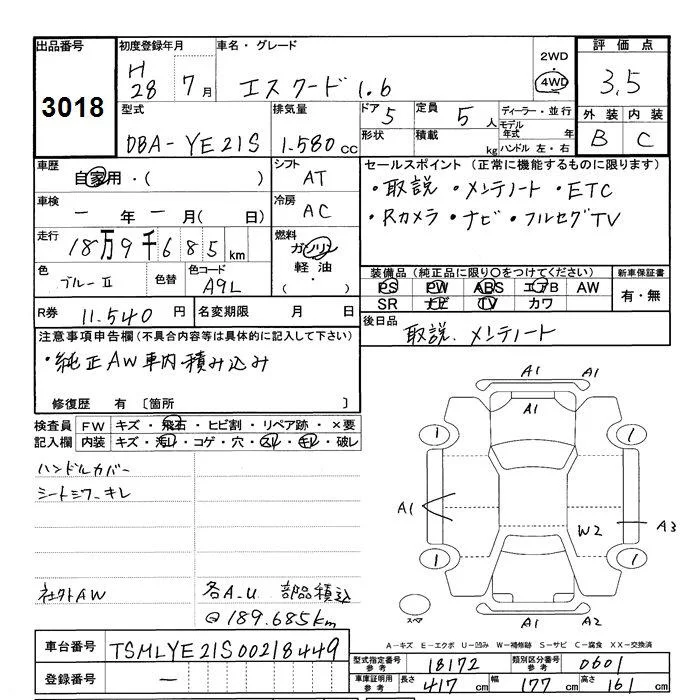 出品番号
3018
初度登録年月
H
28年 7月
車名・グレード
エスクード 1.6
2WD
・
4WD
評価点
3.5
外装 内装
B C
型式
DBA-YE21S
排気量
1.580cc
ドア
5
形状
定員
5人
積載
kg
ディーラー・並行
モデル
年式 年
ハンドル 左・右
車歴
自家用・( )
シフト
AT
車検
ー年ー月(日)
冷房
AC
走行
18万9千685km
燃料
ガソリン
軽油
・
色
ブルーⅡ
色替
色コード
A9L
R券
11.540円
名変期限 月 日
セールスポイント(正常に機能するものに限ります)
・取説・メンテノート・ETC
・Rカメラ・ナビ・フルセグTV
装備品(純正品に限り○をつけてください)
PS PW ABS エアB AW
SR ナビ TV カワ
新車保証書
有・無
後日品
取説.メンテノート
注意事項申告欄(不具合内容等は具体的に記入して下さい)
・純正AW車内積み込み
修復歴 有〔箇所 〕
検査員
記入欄
FW キズ・飛石・ヒビ割・リペア跡・×要
内装 キズ・汚レ・コゲ・穴・スレ・キレ・破レ
ハンドルカバー
シートシワ・キレ
社外AW
各A.U 部品積込
@189.685km
A1 A1
A1
1 1
A1
W2 A3
1 1
スペア
A1 A2
A-キズ E-エクボ U-凹み W-補修跡 S-サビ C-腐食 XX-交換済
車台番号
TSMLYE21S00218449
登録番号
ー
型式指定番号
参考
18172
類別区分番号
参考
0601
車庫証明用
参考
長さ 417cm 幅 177cm 高さ 161cm